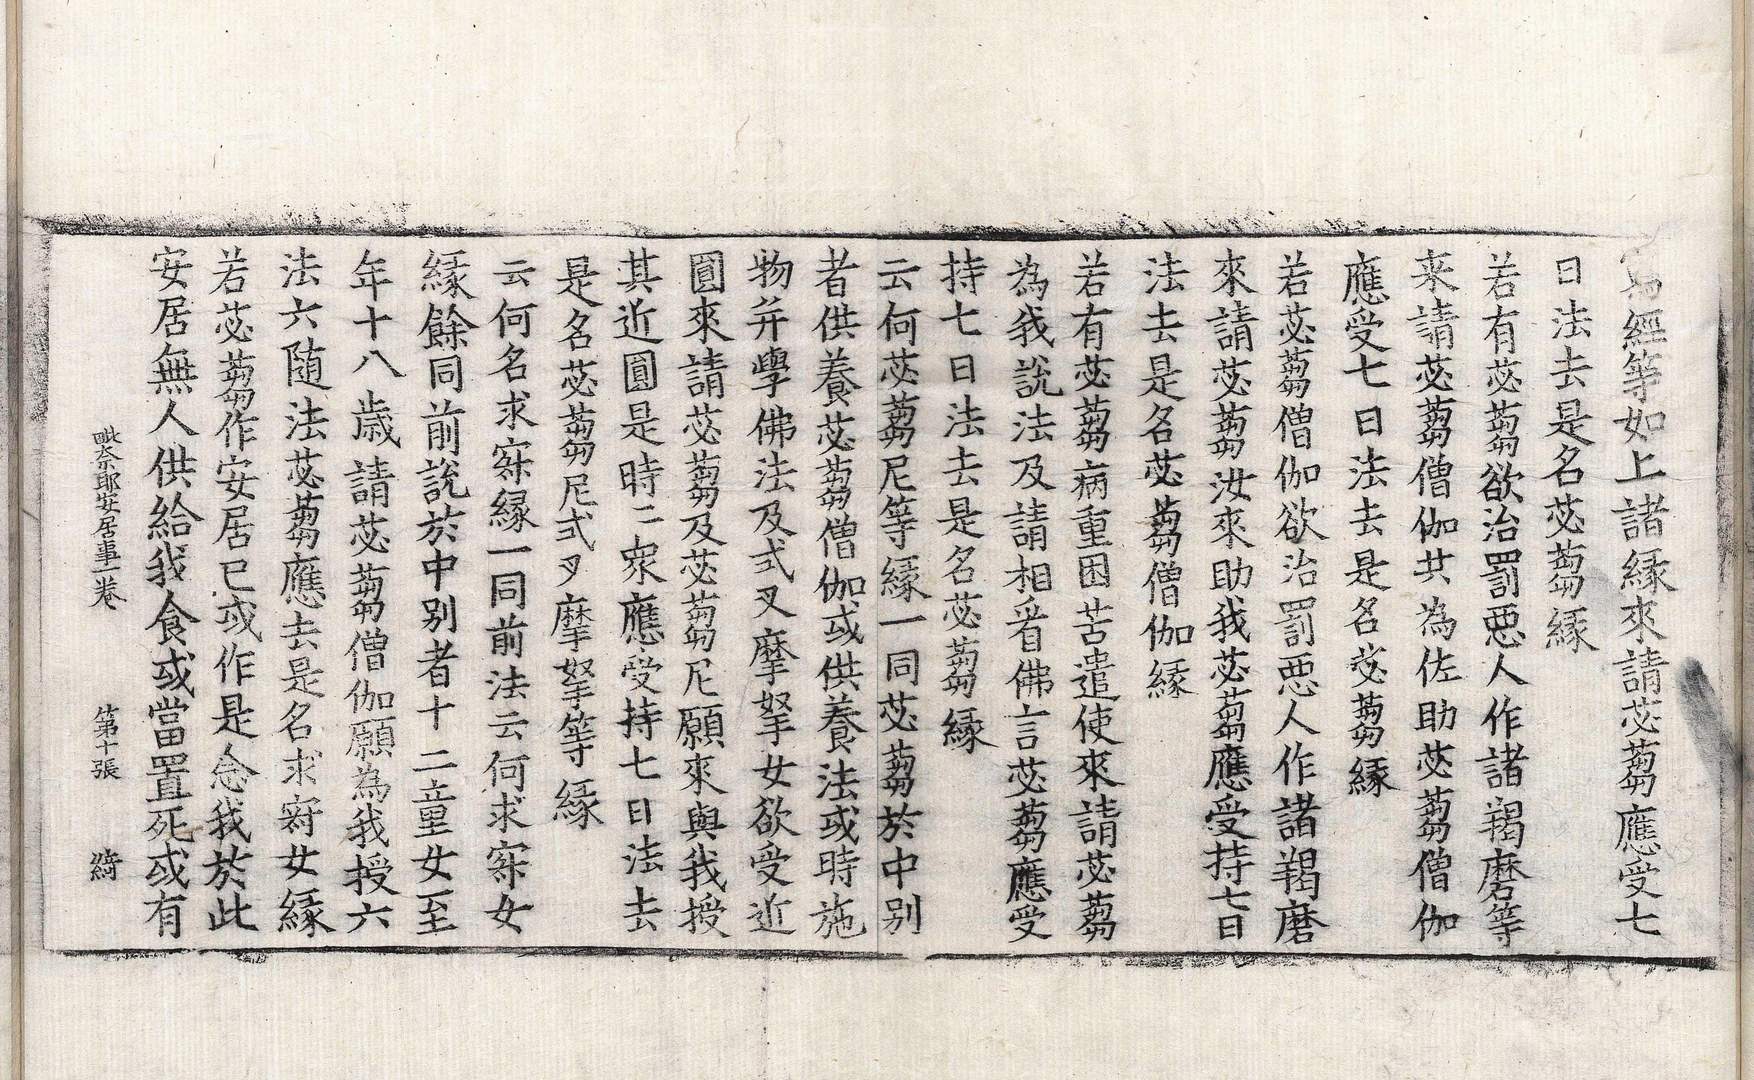 寫經等如上諸縁來請苾蒭應受七
日法去是名苾蒭縁
若有苾蒭欲治罰惡人作諸羯磨等
来請苾蒭僧伽共為佐助苾蒭僧伽
應受七日法去是名苾蒭縁
若苾蒭僧伽欲治罰惡人作諸羯磨
來請苾蒭汝來助我苾蒭應受持七日
法去是名苾蒭僧伽縁
若有苾蒭病重困苦遣使來請苾蒭
為我說法及請相看佛言苾蒭應受
持七日法去是名苾蒭縁
云何苾蒭尼等縁一同苾蒭於中别
者供養苾蒭僧伽或供養法或時施
物并學佛法及式叉摩拏女欲受近
圓來請苾蒭及苾蒭尼願來與我授
其近圓是時二衆應受持七日法去
是名苾蒭尼式叉摩拏等縁
云何名求寂縁一同前法云何求寂女
縁餘同前説於中别者十二童女至
年十八歲請苾蒭僧伽願為我授六
法六随法苾蒭應去是名求寂女縁
若苾蒭作安居已或作是念我於此
安居無人供給我食或當置死或有
毗奈耶安居事一卷 第十張 綺